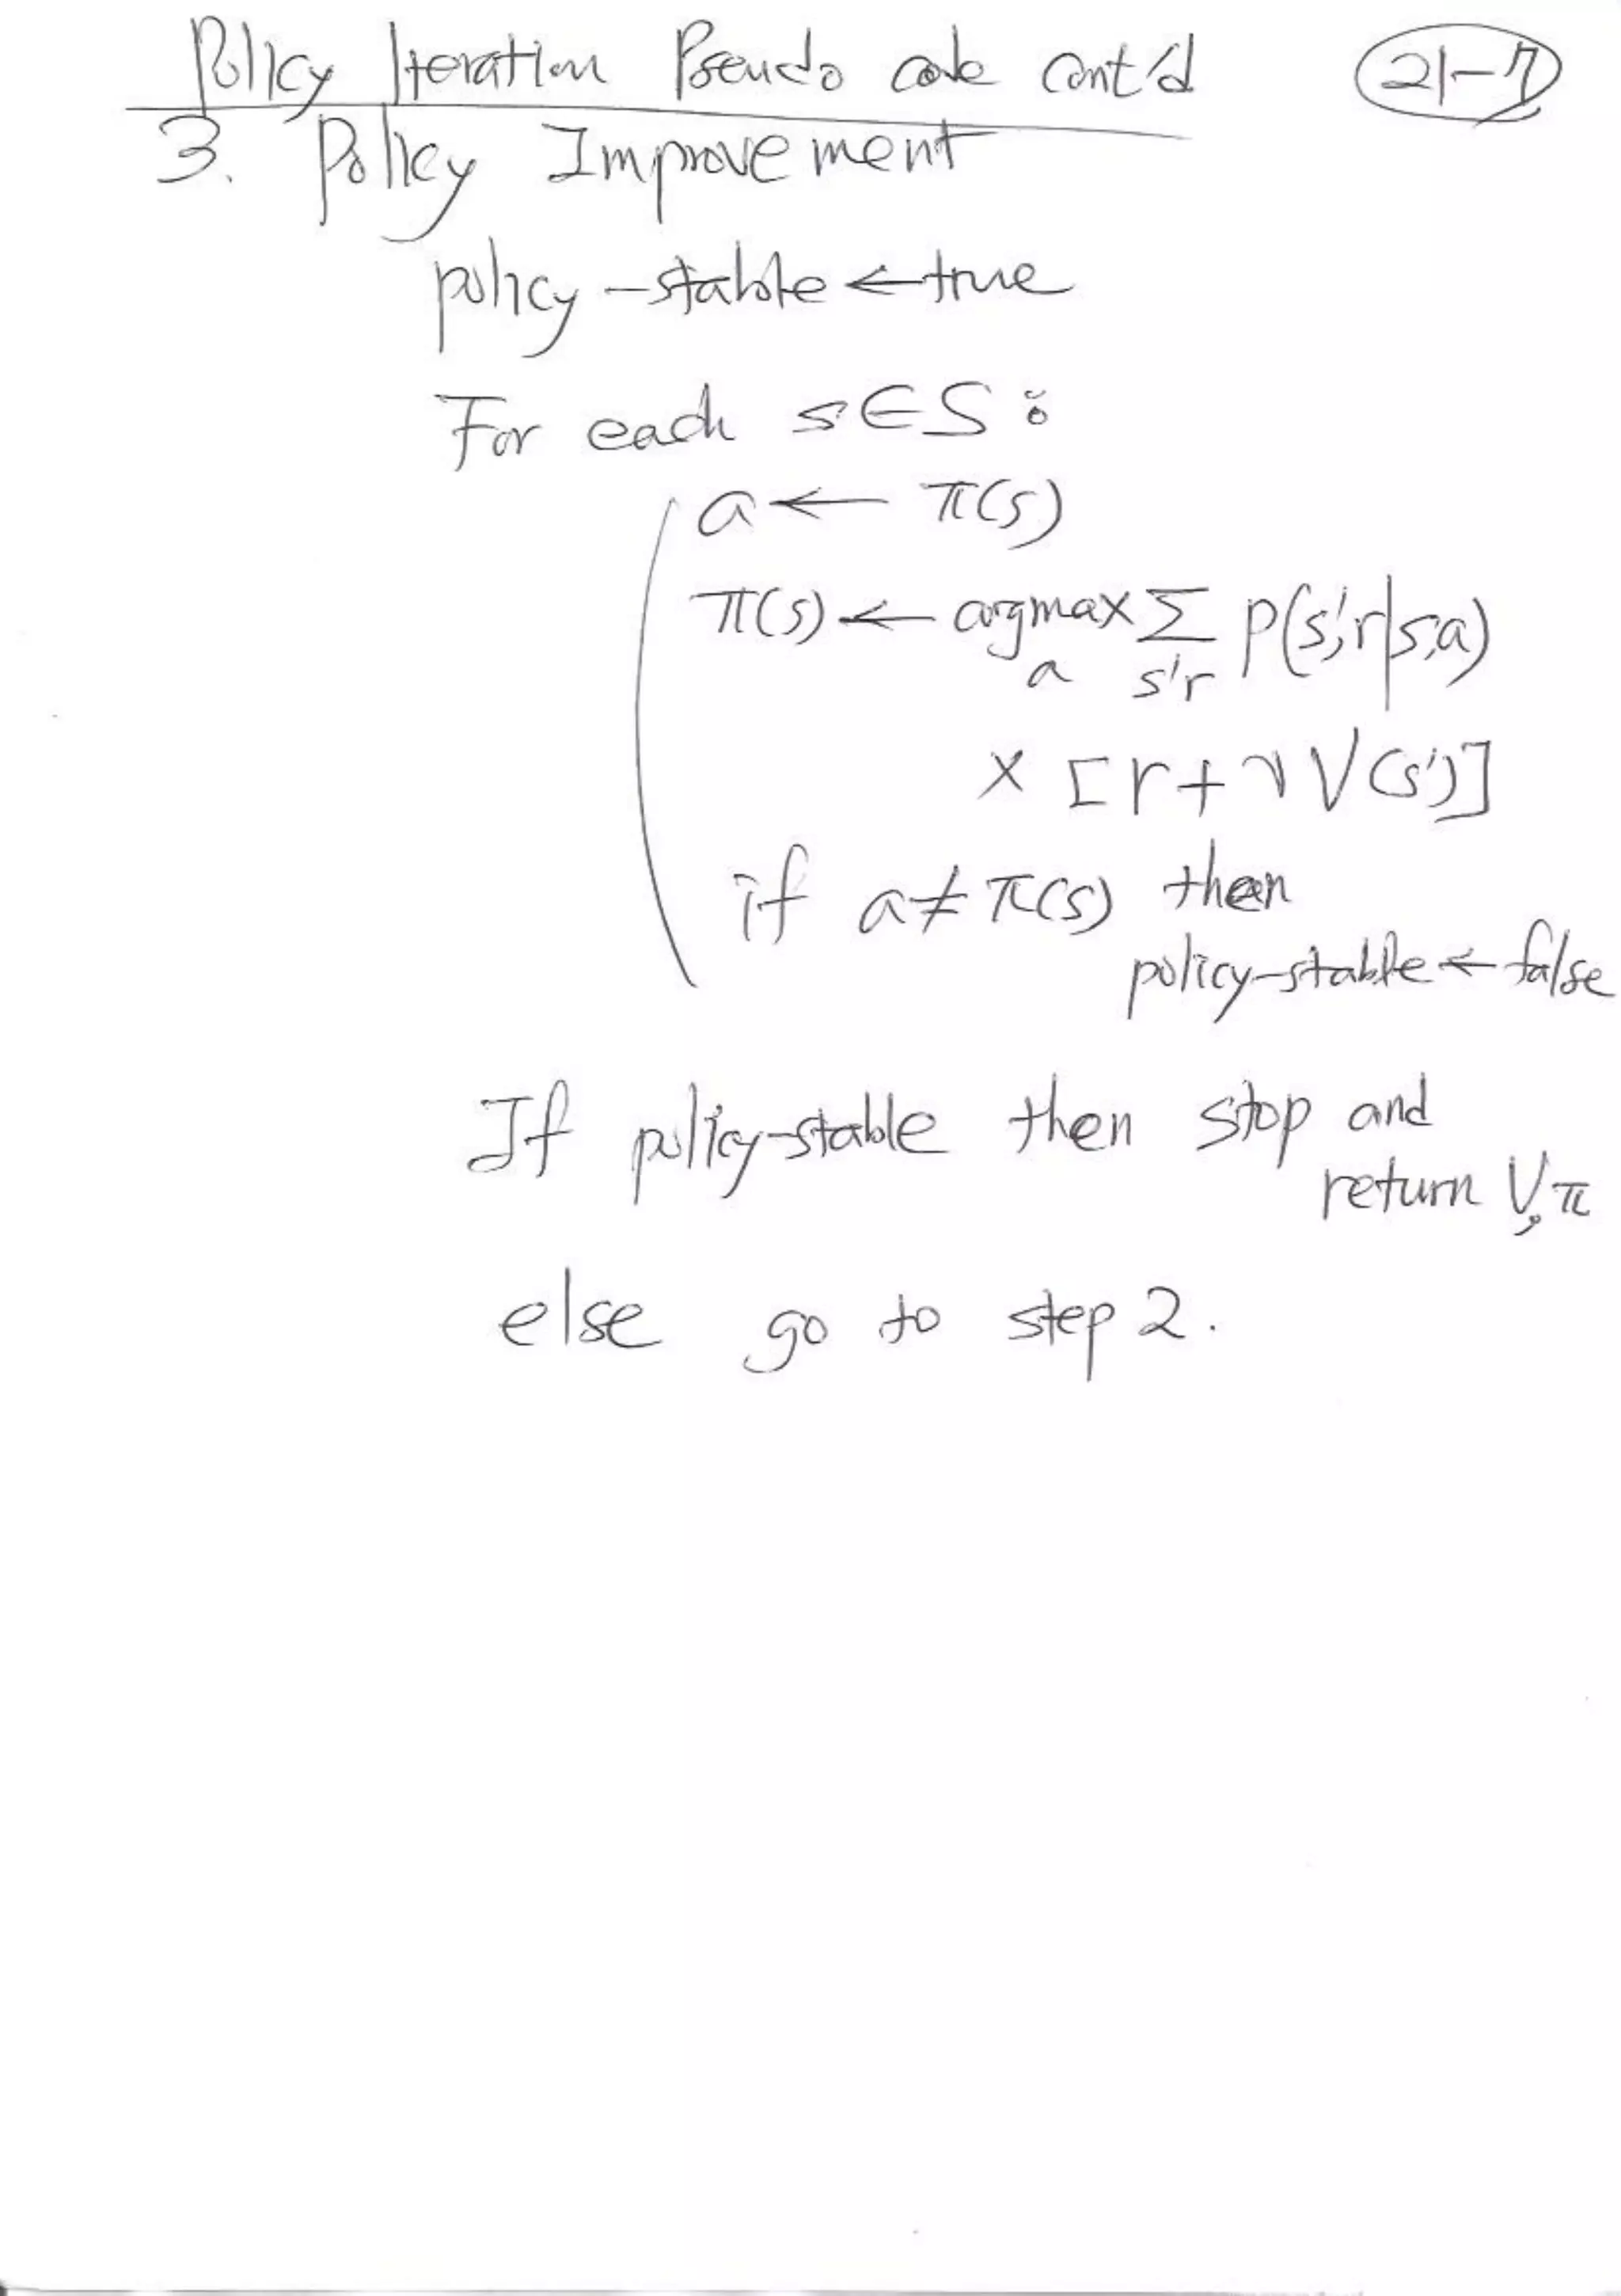 Policy Iteration Pseudo code Cont'd
21-7
3. Policy Improvement
policy-stable ← true
For each s∈S :
a ← π(s)
π(s) ← argmax Σ p(s',r|s,a)
a s'r
× [r + γ V(s')]
if a ≠ π(s) then
policy-stable ← false
If policy-stable then stop and
return V, π
else go to step 2.